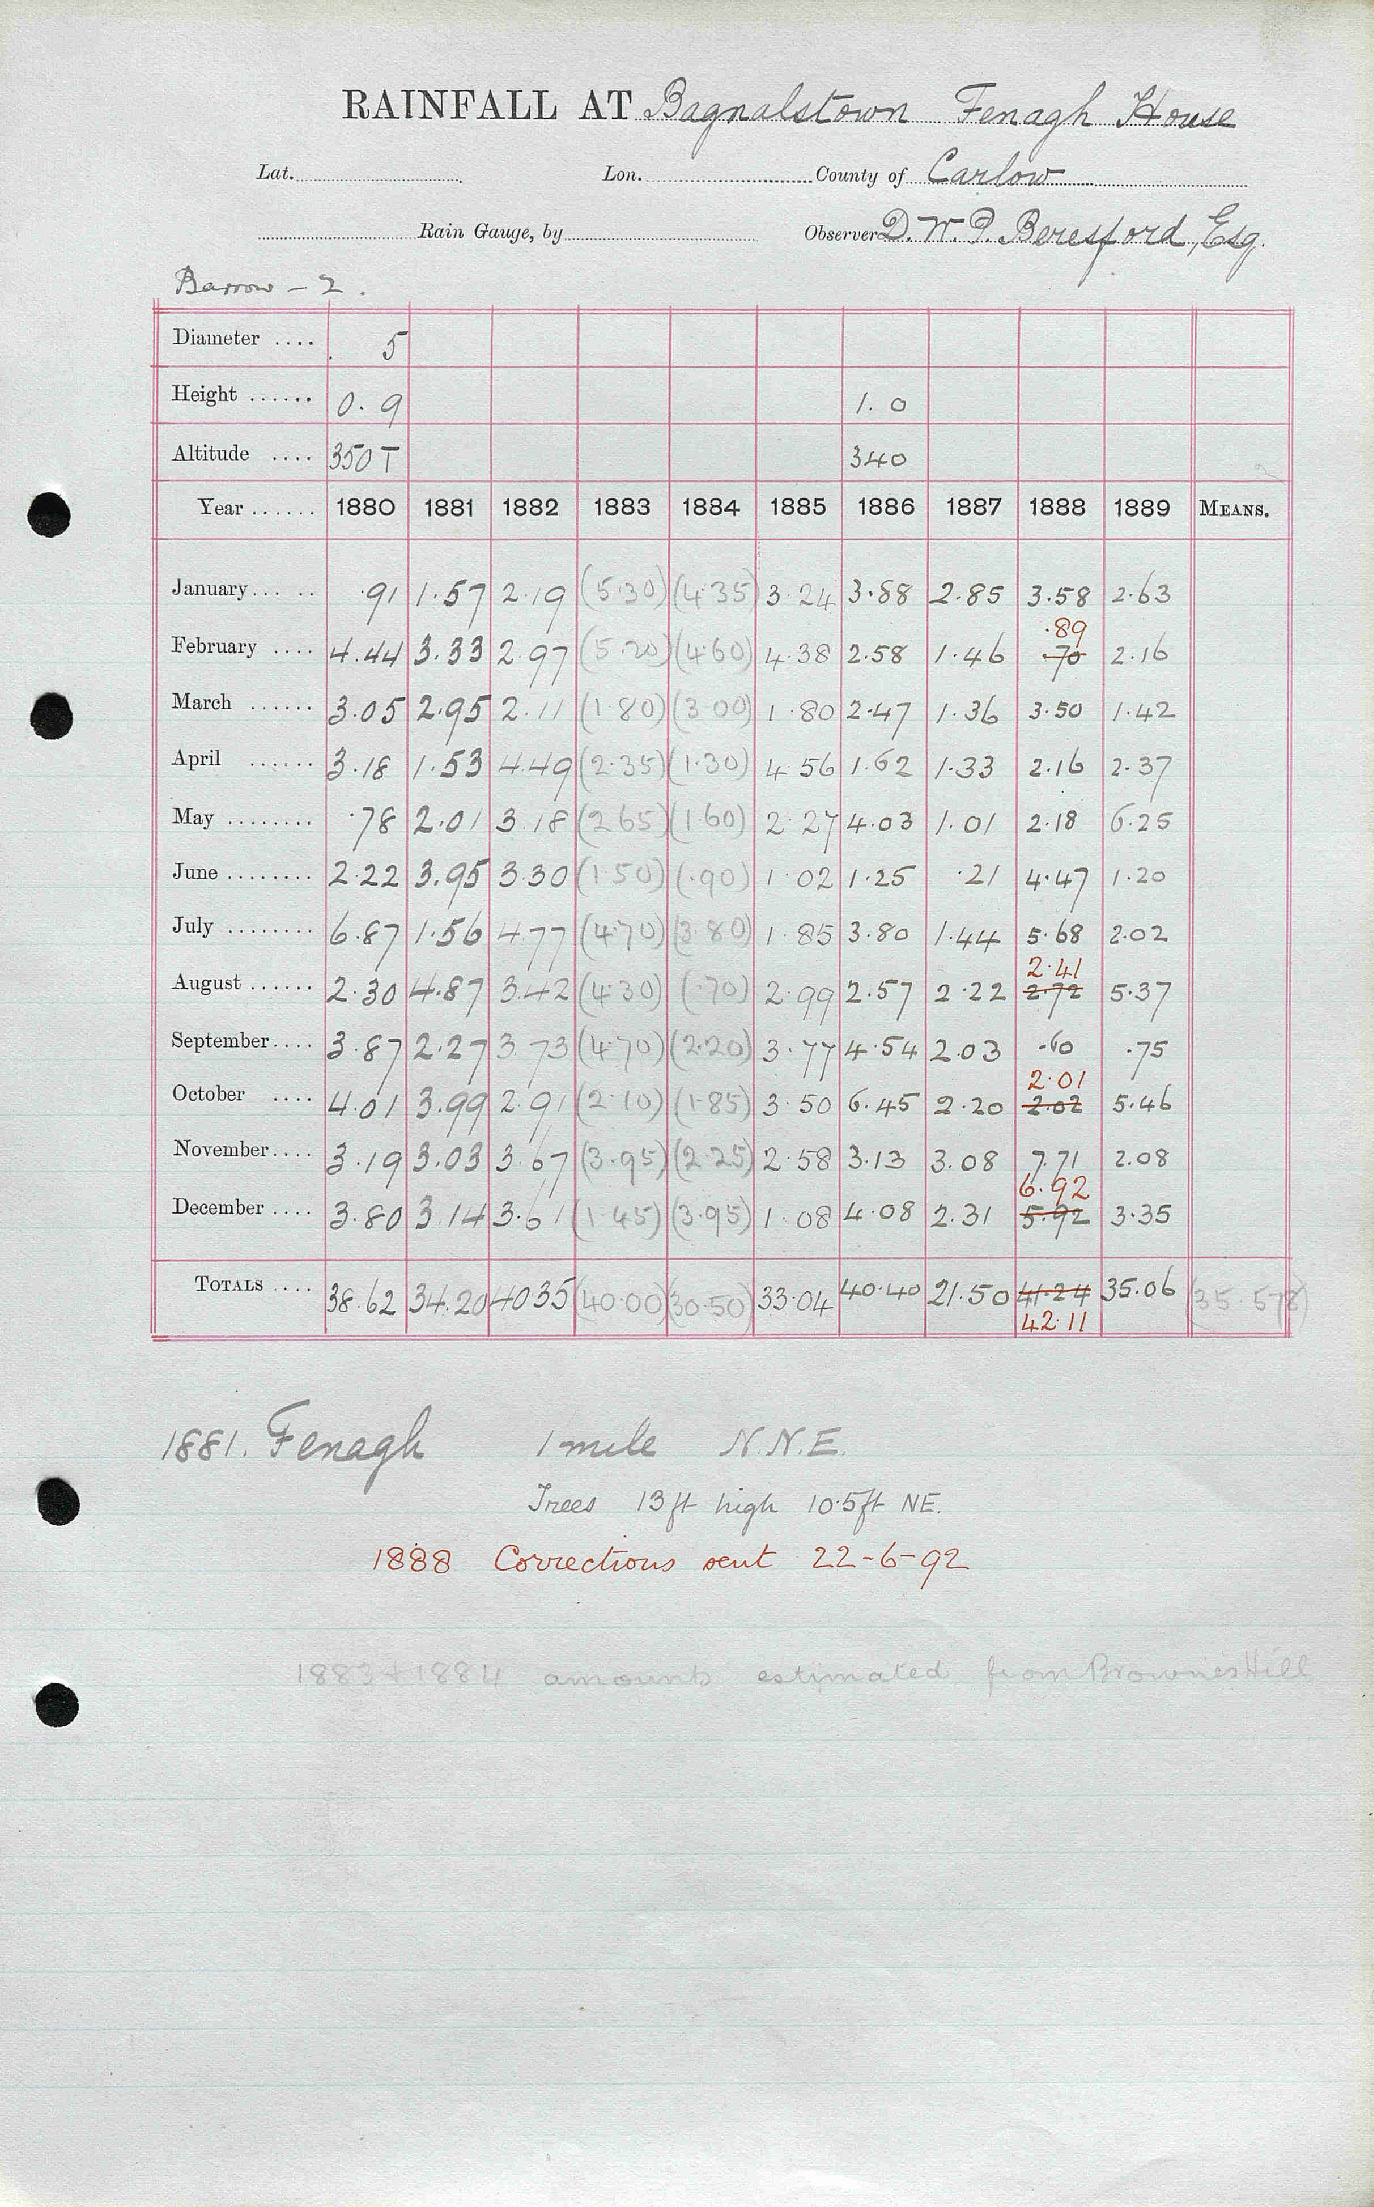 RAINFALL AT Bagnalstown Fenagh House
Lat. Lon. County of Carlow
Rain Gauge, by Observer D. W. P. Beresford, Esq.
Barrow - 2.
Diameter .... 5
Height ...... 0.9 1.0
Altitude .... 350 T 340
Year ...... 1880 1881 1882 1883 1884 1885 1886 1887 1888 1889 MEANS.
January ...... .91 1.57 2.19 (5.30) (4.35) 3.24 3.88 2.85 3.58 2.63
.89
February .... 4.44 3.33 2.97 (5.20) (4.60) 4.38 2.58 1.46 .70 2.16
March ...... 3.05 2.95 2.11 (1.80) (3.00) 1.80 2.47 1.36 3.50 1.42
April ...... 3.18 1.53 4.49 (2.35) (1.30) 4.56 1.62 1.33 2.16 2.37
May ........ .78 2.01 3.18 (2.65) (1.60) 2.27 4.03 1.01 2.18 6.25
June ........ 2.22 3.95 3.30 (1.50) (.90) 1.02 1.25 .21 4.47 1.20
July ........ 6.87 1.56 4.77 (4.70) (3.80) 1.85 3.80 1.44 5.68 2.02
2.41
August ...... 2.30 4.87 3.42 (4.30) (.70) 2.99 2.57 2.22 2.72 5.37
September .... 3.87 2.27 3.73 (4.70) (2.20) 3.77 4.54 2.03 .60 .75
2.01
October .... 4.01 3.99 2.91 (2.10) (1.85) 3.50 6.45 2.20 2.02 5.46
November .... 3.19 3.03 3.67 (3.95) (2.25) 2.58 3.13 3.08 7.71 2.08
6.92
December .... 3.80 3.14 3.61 (1.45) (3.95) 1.08 4.08 2.31 5.92 3.35
TOTALS .... 38.62 34.20 40.35 (40.00) (30.50) 33.04 40.40 21.50 41.24 35.06 (35.578)
42.11
1881. Fenagh 1 mile N.N.E.
Trees 13 ft high 10.5 ft NE.
1888 Corrections sent 22-6-92
1883 + 1884 amounts estimated from Brownes Hill